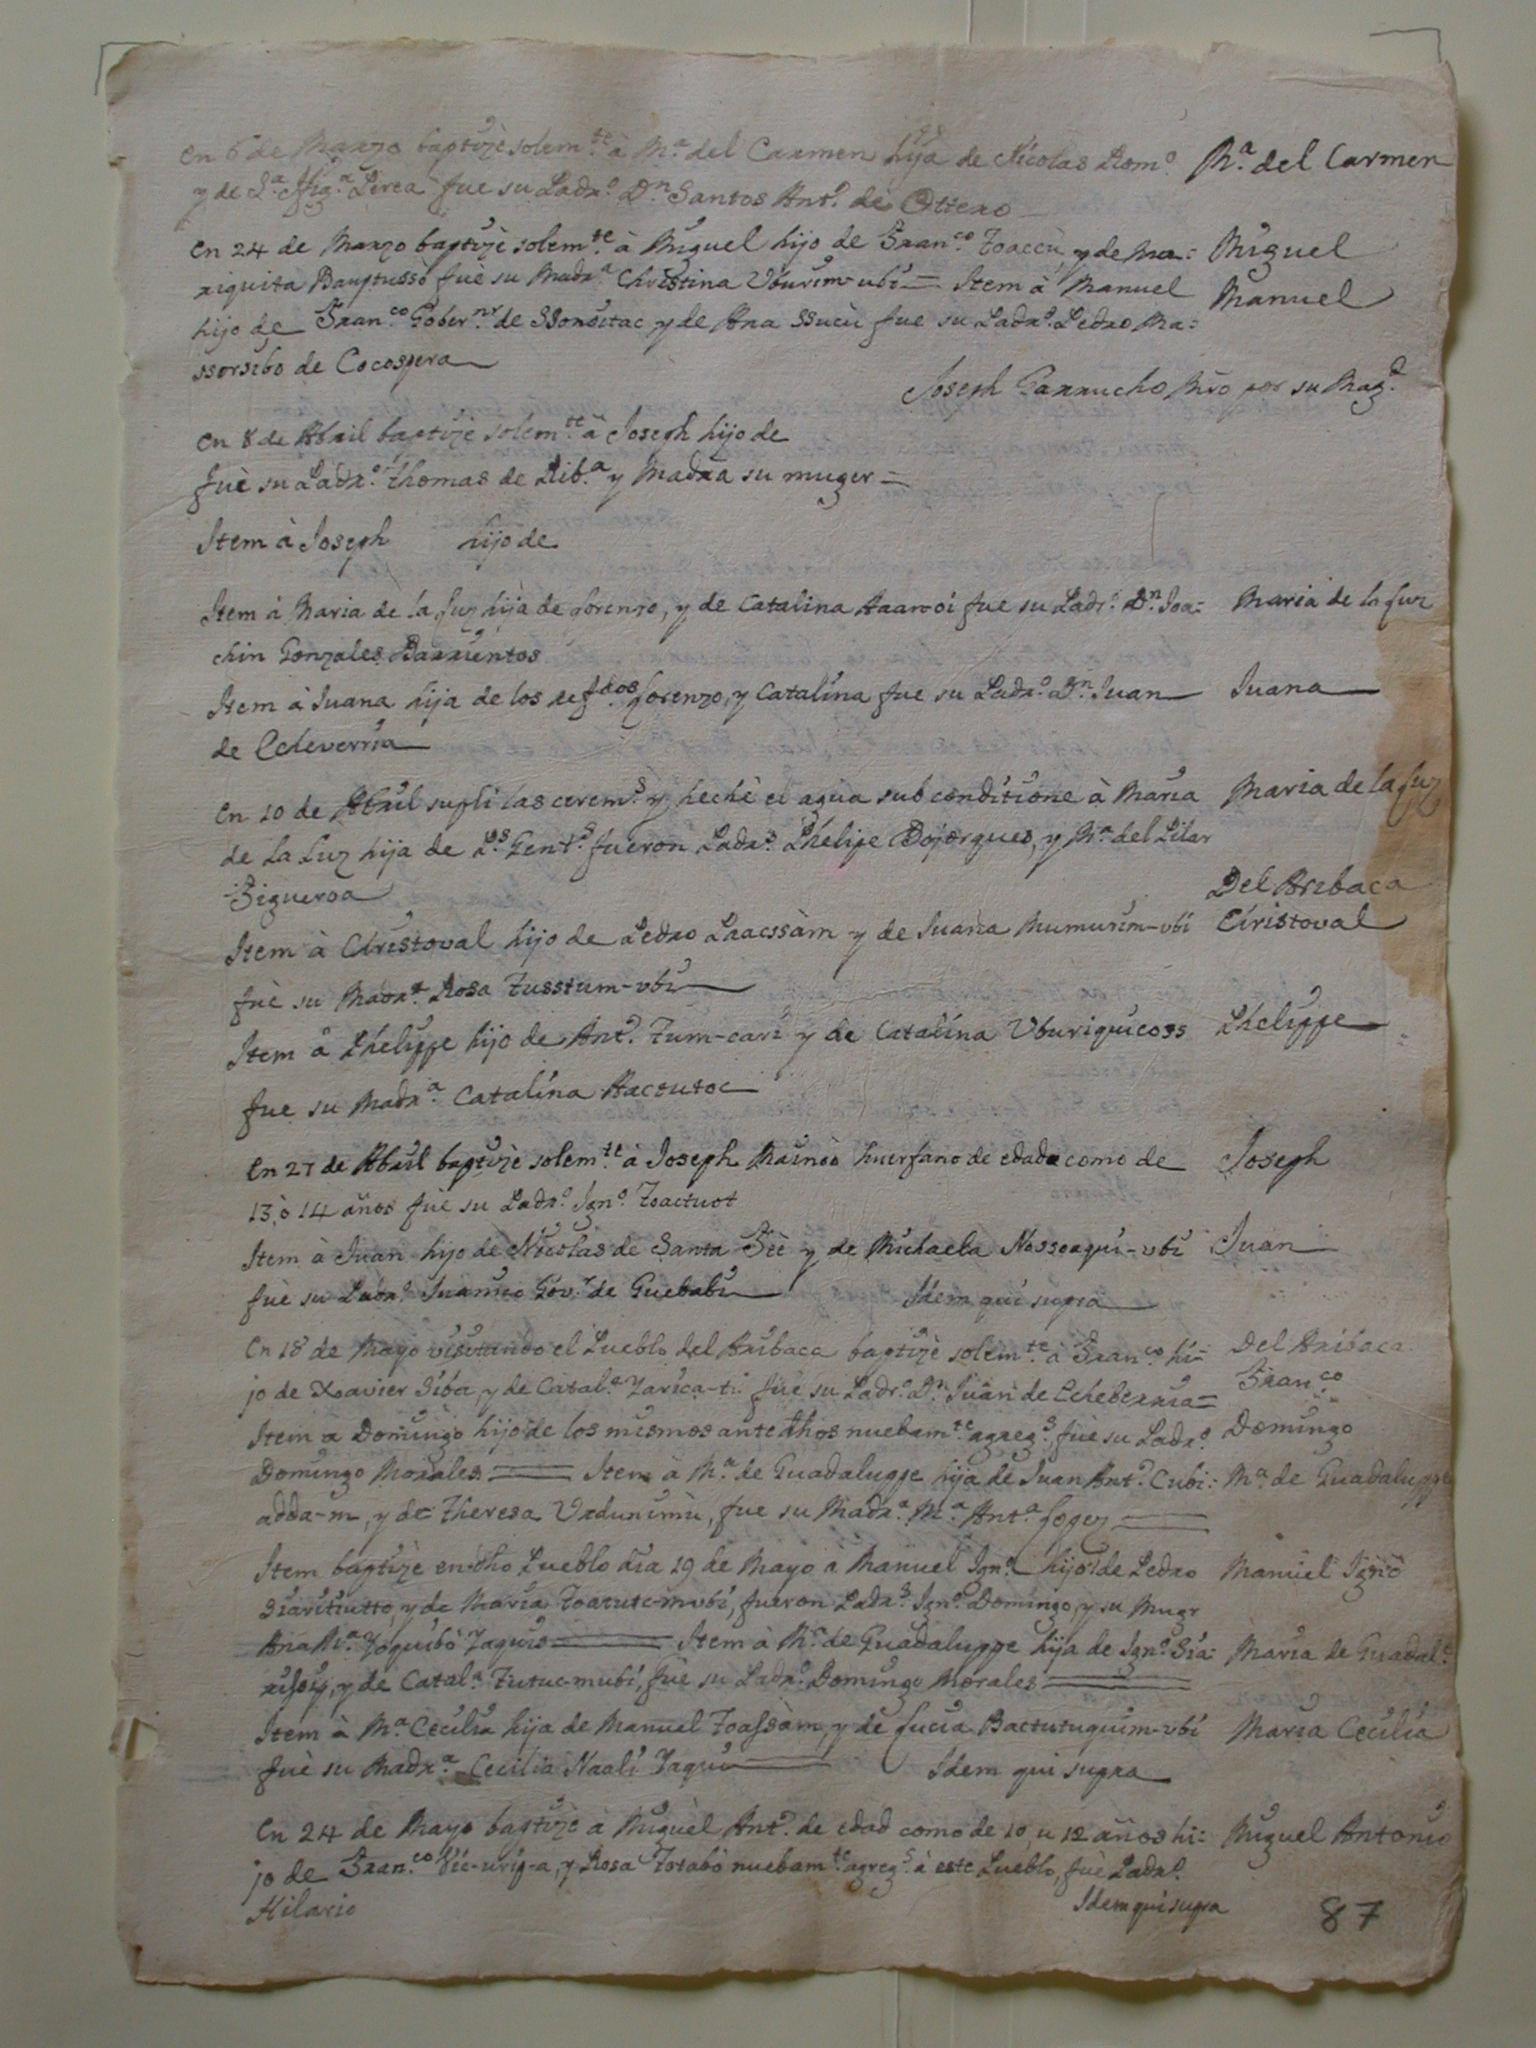 En 6 de Marzo baptizè solem.te à M.a del Carmen hija de Nicolas Rom.o M.a del Carmen
y de fue su Padr.o D.n Santos Ant.o de Ottero
En 24 de Marzo baptizè solem.te à Miguel hijo de Fran.co Toaccù y de Ma= Miguel
riquita fuè su Madr.a Christina Uburim-ubi = Item à Manuel Manuel
hijo de Fran.co Gober.nr de y de Ana fue su Padr.o Pedro Ma=
ssorsibo de Cocospera
Joseph Garrucho Mro por su Mag.d
En 8 de Abril baptizè solem.te à Joseph hijo de
fuè su Padr.o Thomas de Rib.a y Madra su muger =
Item à Joseph hijo de
Item à Maria de la Luz hija de Lorenzo, y de Catalina fue su Padr.o D.n Joa= Maria de la Luz
chin Gonzales Barrientos
Item à Juana hija de los refdos Lorenzo, y Catalina fue su Padr.o D.n Juan Juana
de Echeverria
En 10 de Abril supli las cerem.s y hechè el agua sub conditione à Maria Maria de la Luz
de La Luz hija de P.s Gent.s fueron Padr.s Phelipe Bojorques, y M.a del Pilar
Figueroa
Del Aribaca
Item à Christoval hijo de Pedro Paacssàm y de Juana Mumurim-vbi Christoval
fuè su Madr.a Rosa Tusstum-vbi
Item à Phelippe hijo de Ant.o Tum-cari y de Catalina Vburiquicoss Phelippe
fue su Madr.a Catalina Hactutoc
En 27 de Abril baptizè solem.te à Joseph huerfano de edad como de Joseph
13, ò 14 años fuè su Padr.o Ign.o Toactuot
Item à Juan hijo de Nicolas de Santa Feè y de Michaela Nossoaqui-vbi Juan
fuè su Padr.o Juanico Gov.r de Guebabi Idem qui supra
En 18 de Mayo visitando el Pueblo del Aribaca baptizè solem.te à Fran.co hi= Del Aribaca
jo de Xavier Siba y de Catal.a fue su Padr.o D.n Juan de Echeberria = Fran.co
Item à Domingo hijo de los mismos antedhos nuebam.te agreg.s, fuè su Padr.o Domingo
Domingo Morales = Item à M.a de Guadaluppe hija de Juan Ant.o Cubi= M.a de Guadaluppe
adda-m, y de Theresa Vrdunimù, fue su Madr.a M.a Ant.a Lopez
Item baptizè en dho Pueblo dia 19 de Mayo à Manuel Ign.o hijo de Pedro Manuel Ign.o
Siaritiutto y de Maria Toatutc-mvbi, fueron Padr.s Ign.o Domingo, y su Mugr
Ana M.a Yoquibò Yaquis = Item à M.a de Guadaluppe hija de Ign.o Sia= Maria de Guadal.e
y de Catal.a Tutuc-mubi, fuè su Padr.o Domingo Morales
Item à M.a Cecilia hija de Manuel Toassàm, y de Lucia Bactutuquim-vbi Maria Cecilia
fuè su Madr.a Cecilia Naali Yaqui Idem qui supra
En 24 de Mayo baptizè à Miguèl Ant.o de edad como de 10, u 12 años hi= Miguel Antonio
jo de Fran.co Vic-urig-a, y Rosa Totabò nuebam.te agreg.s à este Pueblo, fuè Padr.o
Hilario Idem qui supra
87